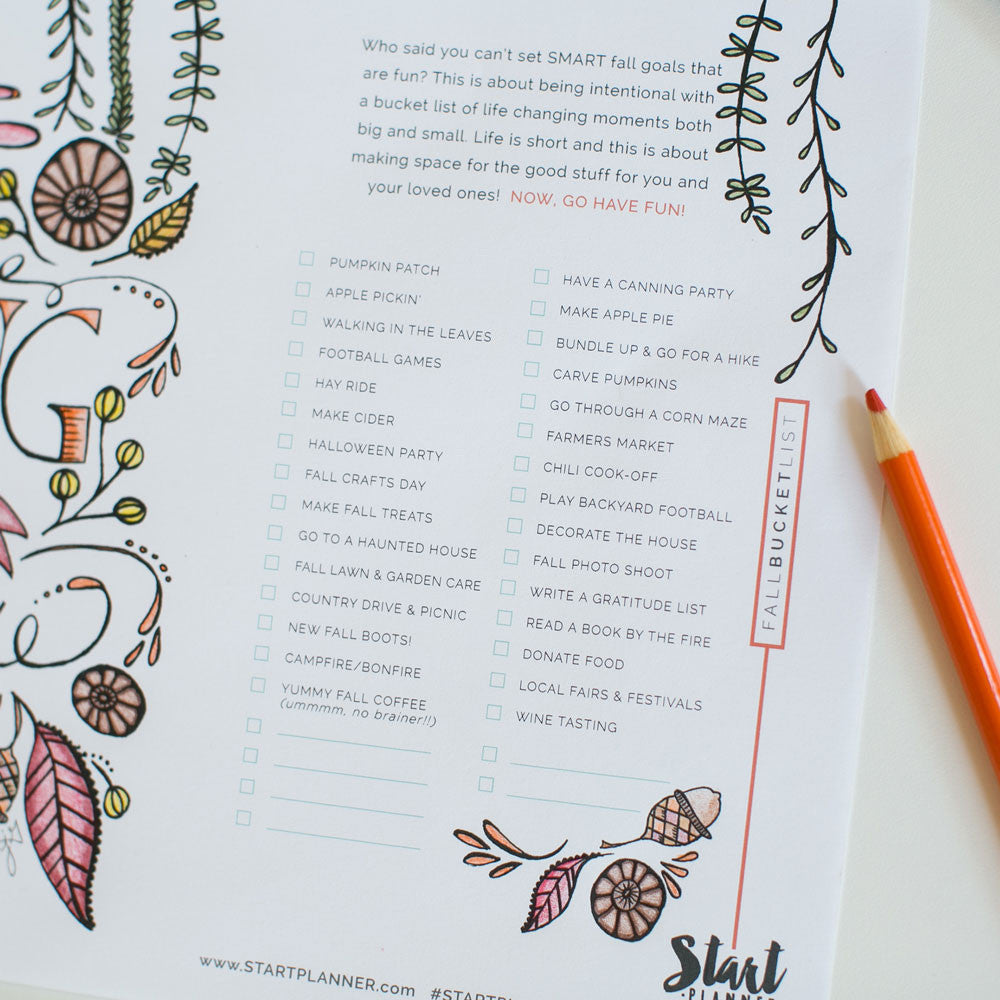 Who said you can't set SMART fall goals that
are fun? This is about being intentional with
a bucket list of life changing moments both
big and small. Life is short and this is about
making space for the good stuff for you and
your loved ones! NOW, GO HAVE FUN!
PUMPKIN PATCH
APPLE PICKIN'
WALKING IN THE LEAVES
FOOTBALL GAMES
HAY RIDE
MAKE CIDER
HALLOWEEN PARTY
FALL CRAFTS DAY
MAKE FALL TREATS
GO TO A HAUNTED HOUSE
FALL LAWN & GARDEN CARE
COUNTRY DRIVE & PICNIC
NEW FALL BOOTS!
CAMPFIRE/BONFIRE
YUMMY FALL COFFEE
(ummmm, no brainer!!)
HAVE A CANNING PARTY
MAKE APPLE PIE
BUNDLE UP & GO FOR A HIKE
CARVE PUMPKINS
GO THROUGH A CORN MAZE
FARMERS MARKET
CHILI COOK-OFF
PLAY BACKYARD FOOTBALL
DECORATE THE HOUSE
FALL PHOTO SHOOT
WRITE A GRATITUDE LIST
READ A BOOK BY THE FIRE
DONATE FOOD
LOCAL FAIRS & FESTIVALS
WINE TASTING
FALLBUCKETLIST
G
www.STARTPLANNER.com #STARTP
Start
PLANNER